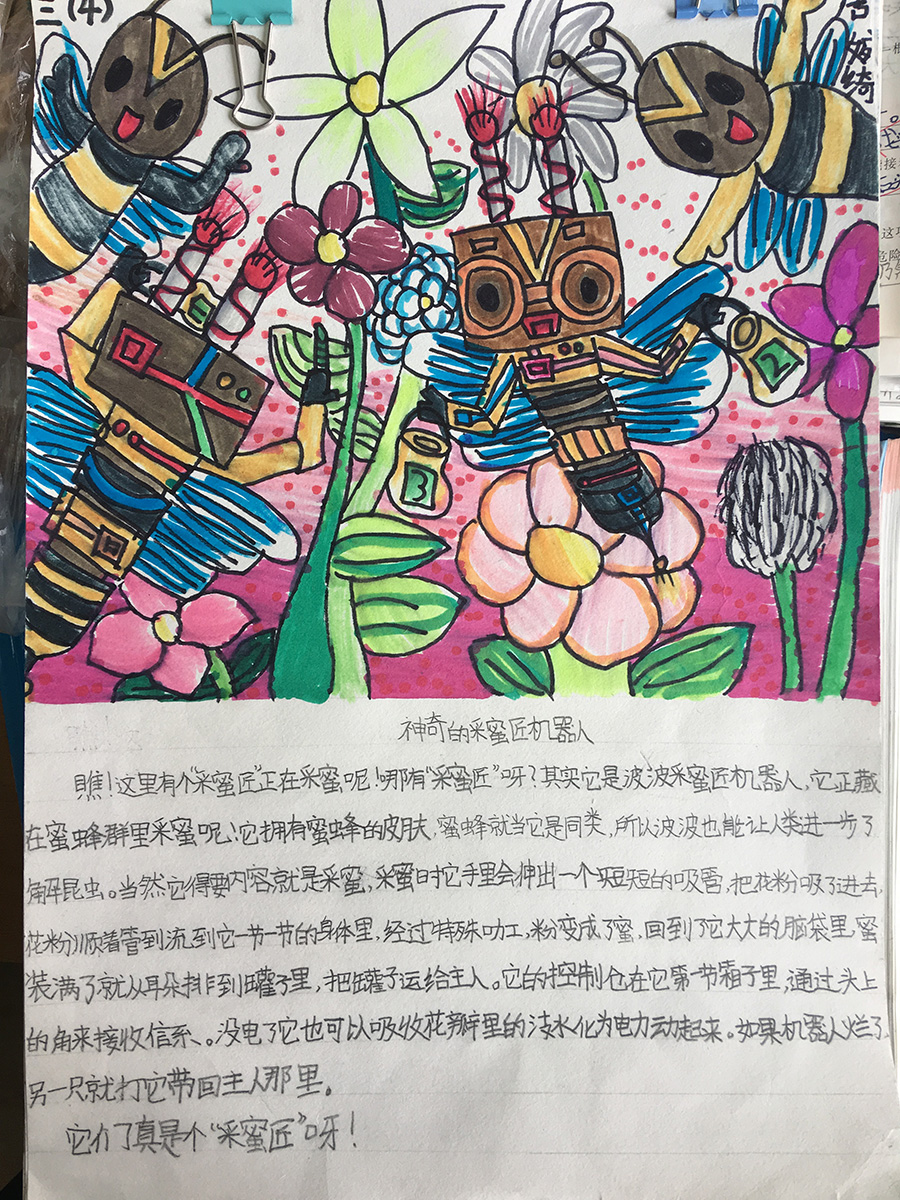 三(4)
2
3
神奇的采蜜匠机器人
瞧！这里有个“采蜜匠”正在采蜜呢！哪有“采蜜匠”呀？其实它是波波采蜜匠机器人，它正藏
在蜜蜂群里采蜜呢！它拥有蜜蜂的皮肤，蜜蜂就当它是同类，所以波波也能让人类进一步了
解昆虫。当然它得要内容就是采蜜，采蜜时它手里会伸出一个短短的吸管，把花粉吸了进去，
花粉顺着管到流到它一节一节的身体里，经过特殊加工，粉变成了蜜，回到了它大大的脑袋里，蜜
装满了就从耳朵排到罐子里，把罐子运给主人。它的控制仓在它第一节箱子里，通过头上
的角来接收信系、。没电了它也可以吸收花瓣里的淡水化为电力动起来。如果机器人烂了
另一只就打它带回主人那里。
它们了真是个“采蜜匠”呀！